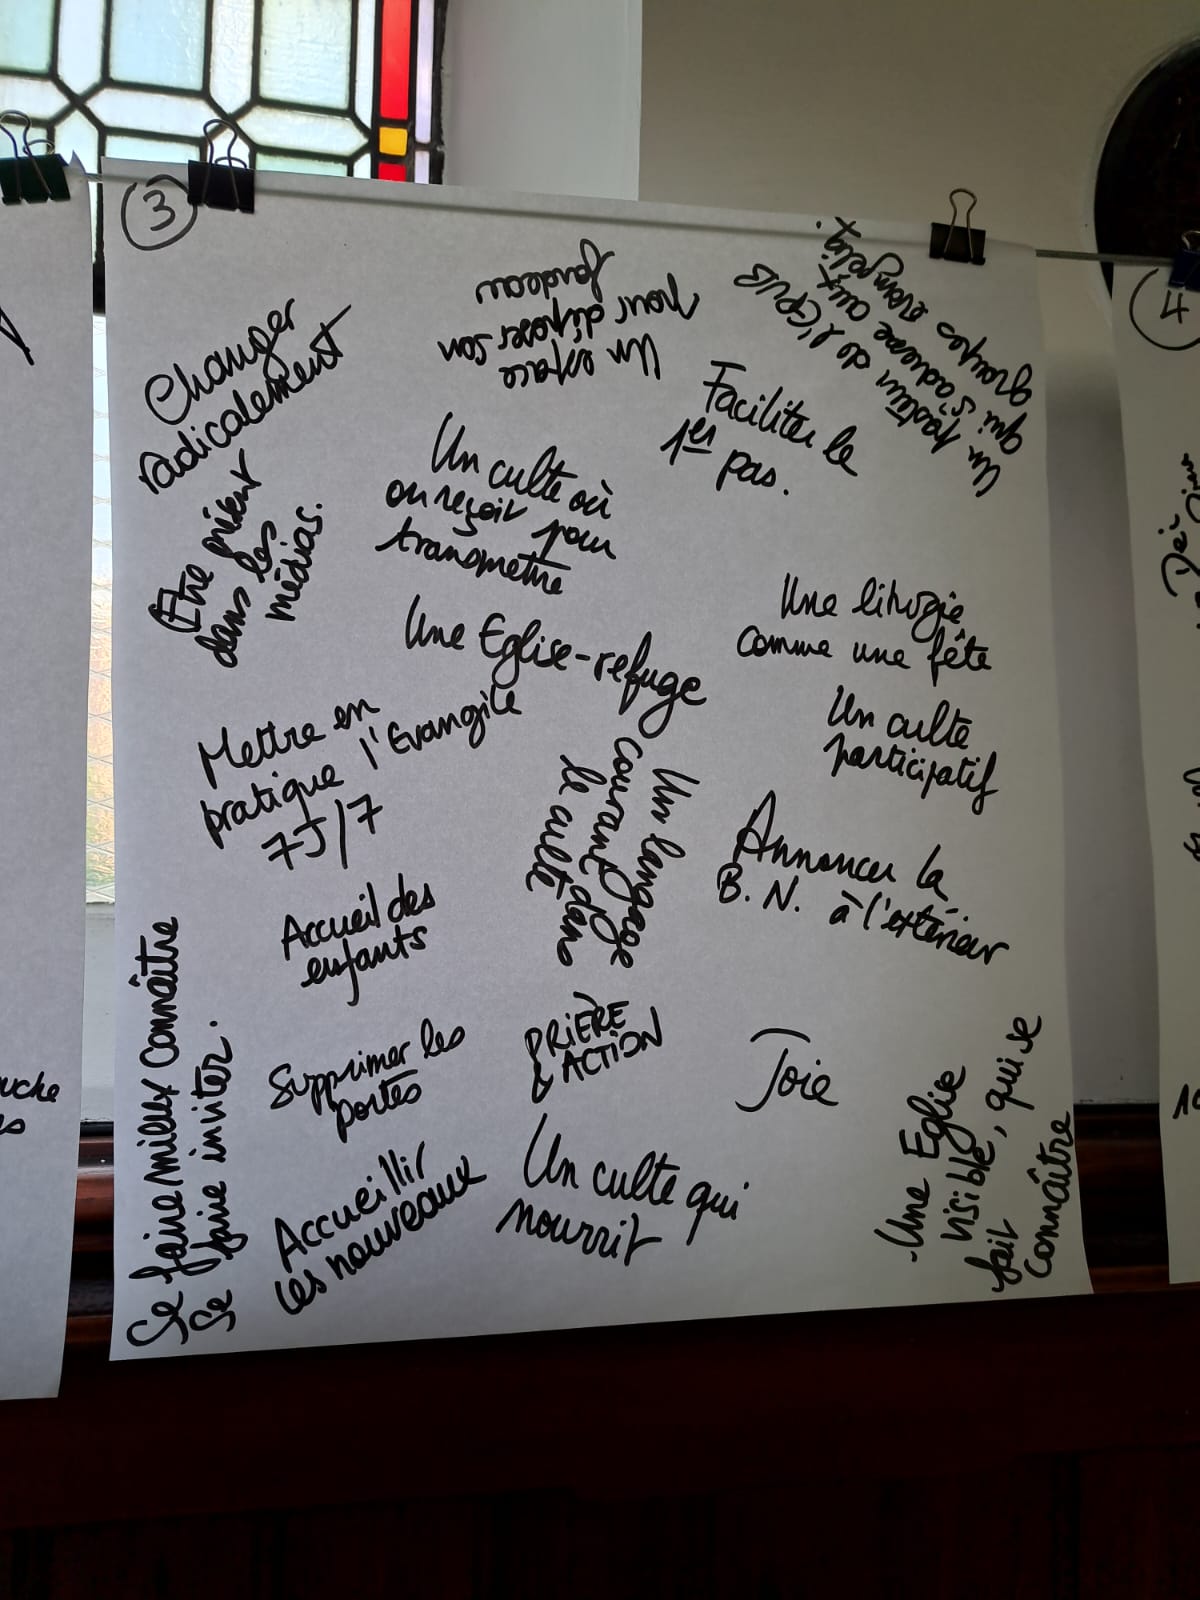 3
Changer
radicalement
Un espace
pour déposer son
fardeau
Un pasteur de l'EPUB
qui s'adresse aux
groupes évangéliq.
Faciliter le
1er pas.
Un culte où
on reçoit pour
transmettre
Etre présent
dans les
médias.
Une liturgie
comme une fête
Une Eglise-refuge
Un culte
participatif
Mettre en
pratique l'Evangile
7J/7
Un langage
courant dans
le culte
Annoncer la
B. N. à l'extérieur
Accueil des
enfants
Se faire mieux connaître
Se faire inviter.
Supprimer les
portes
PRIÈRE
& ACTION
Joie
Une Eglise
visible, qui se
fait
connaître
Accueillir
les nouveaux
Un culte qui
nourrit
4